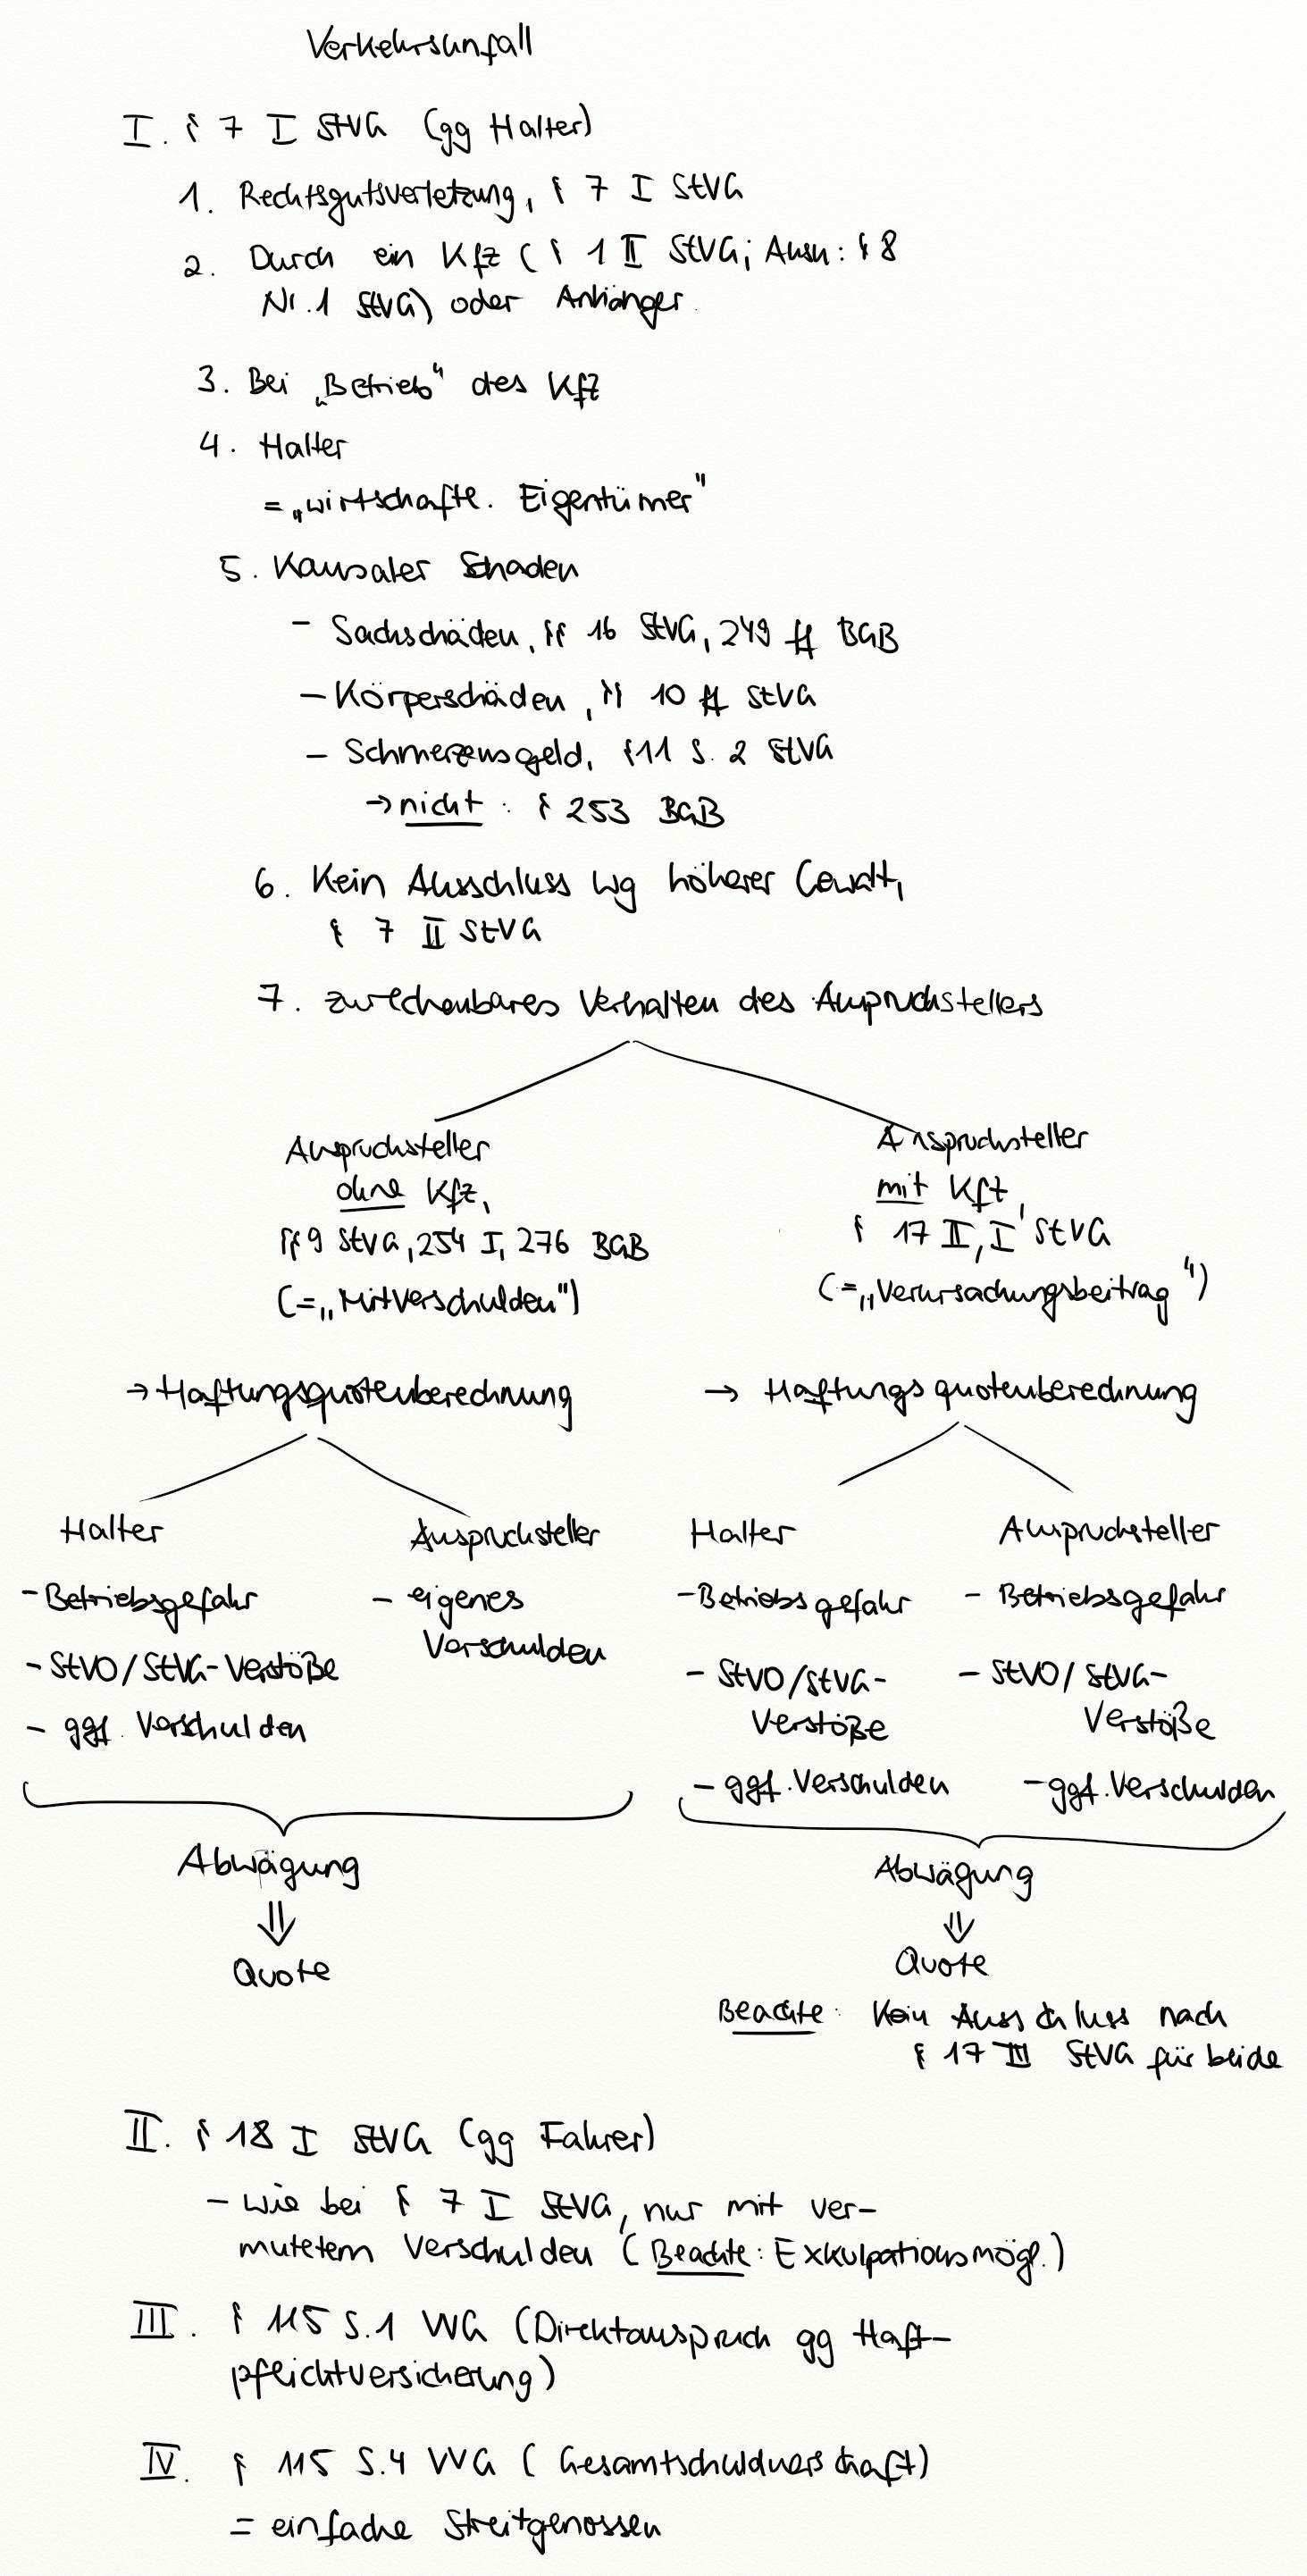 Verkehrsunfall
I. § 7 I StVG (gg Halter)
1. Rechtsgutsverletzung, § 7 I StVG
2. Durch ein Kfz (§ 1 II StVG; Ausn: § 8
Nr. 1 StVG) oder Anhänger.
3. Bei „Betrieb" des Kfz
4. Halter
= „wirtschaftl. Eigentümer"
5. Kausaler Schaden
- Sachschäden, §§ 16 StVG, 249 ff BGB
- Körperschäden, §§ 10 ff StVG
- Schmerzensgeld, §11 S. 2 StVG
→ nicht: § 253 BGB
6. Kein Ausschluss wg höherer Gewalt,
§ 7 II StVG
7. zurechenbares Verhalten des Anspruchstellers
Anspruchsteller
ohne Kfz,
§§ 9 StVG, 254 I, 276 BGB
(= „Mitverschulden")
Anspruchsteller
mit Kfz,
§ 17 II, I StVG
(= „Verursachungsbeitrag")
→ Haftungsquotenberechnung
→ Haftungsquotenberechnung
Halter
- Betriebsgefahr
- StVO/StVG-Verstöße
- ggf. Verschulden
Anspruchsteller
- eigenes
Verschulden
Halter
- Betriebsgefahr
- StVO/StVG-
Verstöße
- ggf. Verschulden
Anspruchsteller
- Betriebsgefahr
- StVO/StVG-
Verstöße
- ggf. Verschulden
Abwägung
⇓
Quote
Abwägung
⇓
Quote
Beachte: Kein Ausschluss nach
§ 17 III StVG für beide
II. § 18 I StVG (gg Fahrer)
- wie bei § 7 I StVG, nur mit ver-
mutetem Verschulden (Beachte: Exkulpationsmögl.)
III. § 115 S.1 VVG (Direktanspruch gg Haft-
pflichtversicherung)
IV. § 115 S.4 VVG (Gesamtschuldnerschaft)
= einfache Streitgenossen